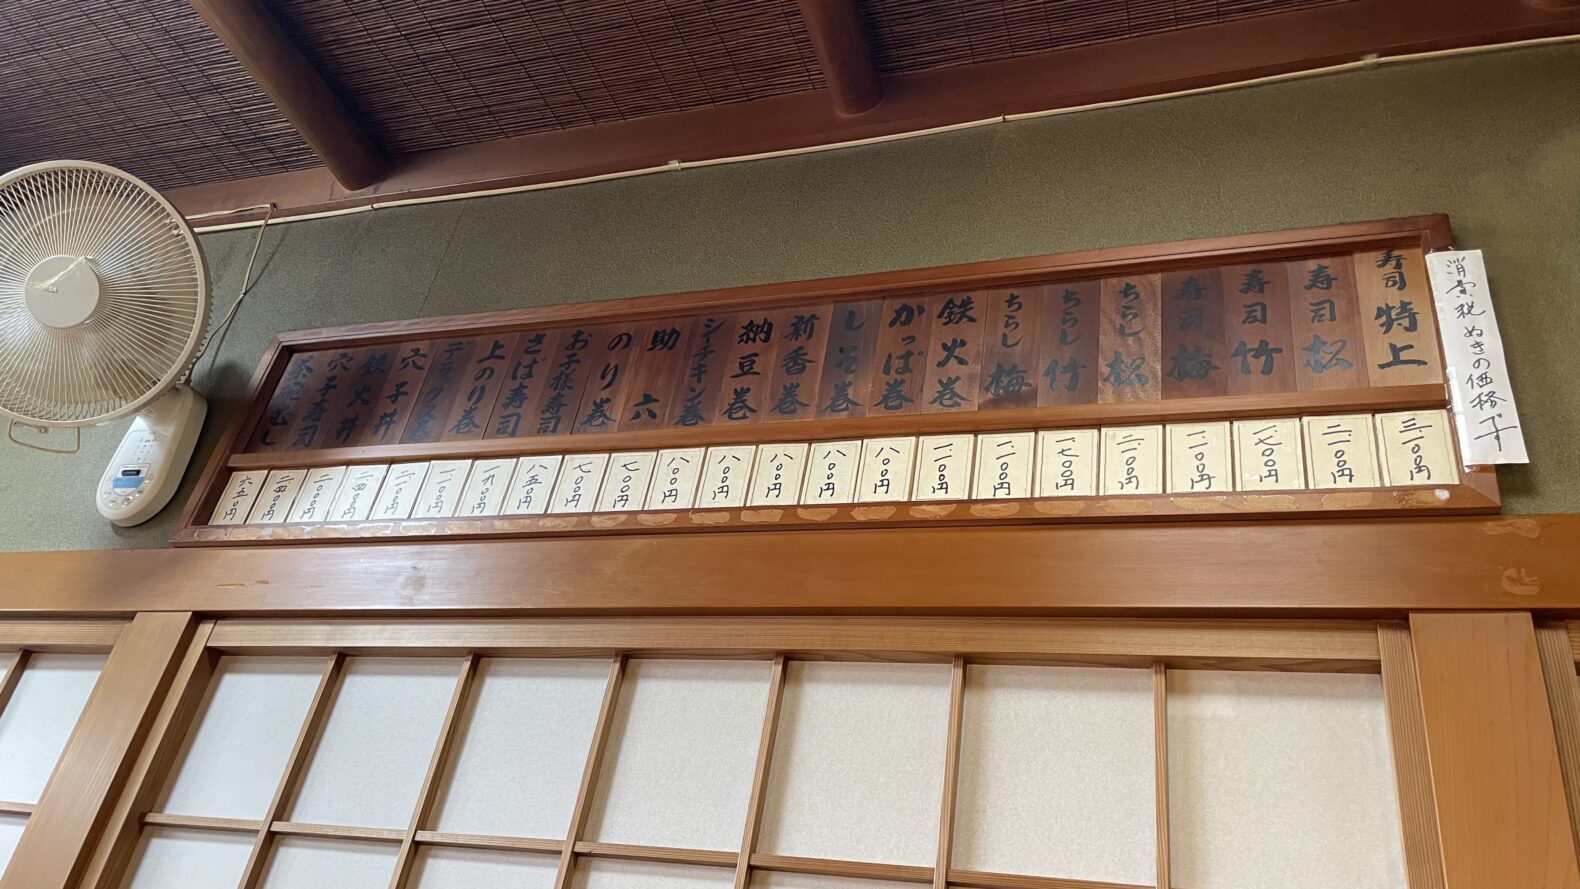 消費税ぬきの価格です
寿司特上
寿司松
寿司竹
寿司梅
ちらし松
ちらし竹
ちらし梅
鉄火巻
かっぱ巻
しそ巻
新香巻
納豆巻
シーチキン巻
助六
のり巻
お子様寿司
さば寿司
上のり巻
デラックス巻
穴子丼
鉄火丼
穴子寿司
茶碗むし
三、一〇〇円
二、一〇〇円
一、七〇〇円
一、一〇〇円
二、一〇〇円
一、七〇〇円
一、一〇〇円
一、一〇〇円
八〇〇円
八〇〇円
八〇〇円
八〇〇円
八〇〇円
七〇〇円
七〇〇円
八五〇円
一、九〇〇円
一、一〇〇円
二、四〇〇円
二、〇〇〇円
二、四〇〇円
六五〇円